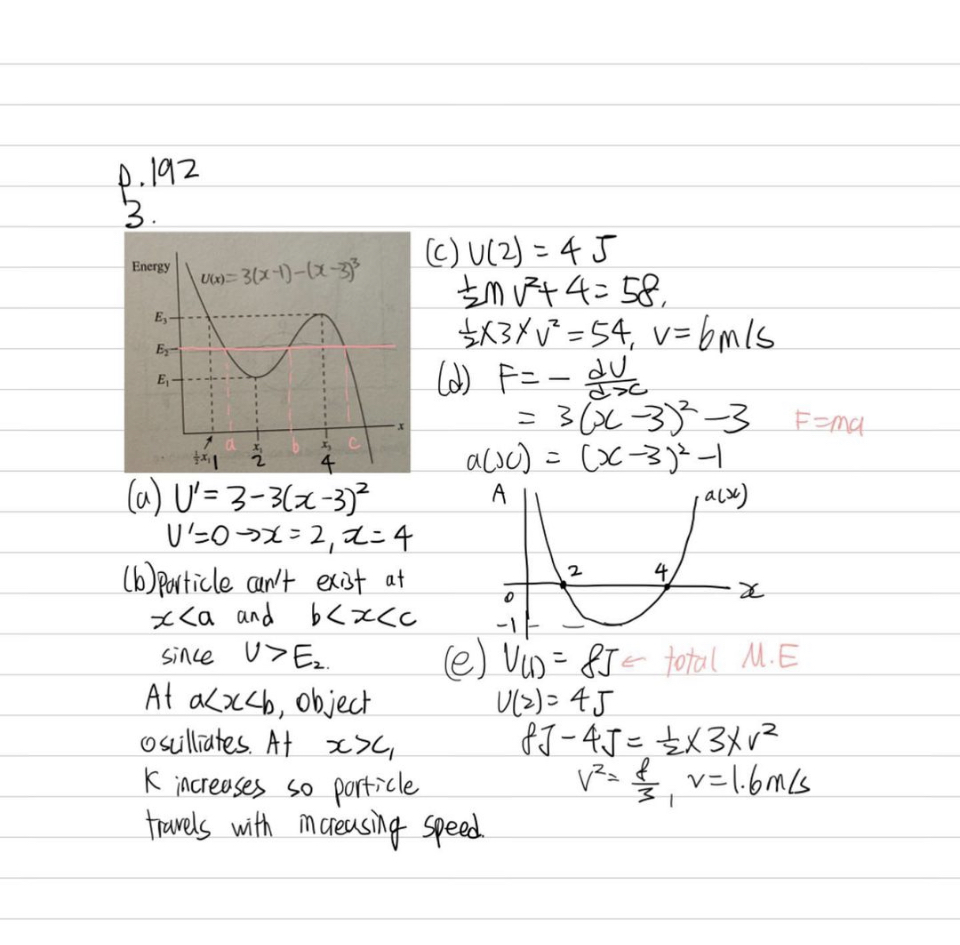 p.192
3.
Energy
U(x)=3(x-1)-(x-3)³
E₃
E₂
E₁
x
½x₁ 1
a
x₁
2
b
x₂
4
c
(a) U'=3-3(x-3)²
U'=0→x=2, x=4
(b) Particle can't exist at
x<a and b<x<c
since U>E₂.
At a<x<b, object
oscilliates. At x>c,
K increases so particle
travels with increasing speed.
(c) U(2)=4J
½mv²+4=58,
½×3×v²=54, v=6m/s
(d) F=-dU/dx
=3(x-3)²-3
F=ma
a(x)=(x-3)²-1
A
a(x)
2
4
x
0
-1
(e) U(1)=8J ← total M.E
U(2)=4J
8J-4J=½×3×v²
v²=8/3, v=1.6m/s